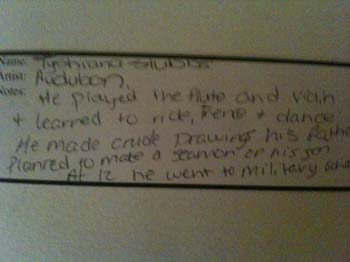 Name: Tyohiana Stubbs
Artist: Audubon,
Notes: He played the flute and violin
+ learned to ride, fence + dance
He made crude Drawings his Fathe
Planned to make a seamon of his son
At 12 he went to military scho